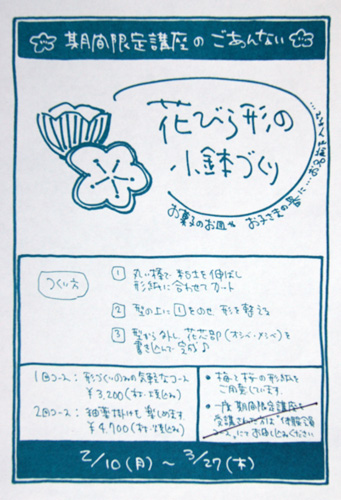 期間限定講座のごあんない
花びら形の
小鉢づくり
お菓子のお皿や お子さまの器に…
つくり方
1 丸い棒で粘土を伸ばし
形紙に合わせてカット
2 型の上に1をのせ形を整える
3 型から外し、花芯部(オシベ・メシベ)を
書き込んで完成♪
1回コース:形づくりのみの気軽なコース
¥3,200(材・焼込み)
2回コース:釉薬掛けを楽しめます
¥4,700(材・焼込み)
・梅と桜の形紙を
ご用意しています。
・一度期間限定講座を
受講された方は「体験講
コース」にてお申し込みください
2/10(月)〜3/27(木)